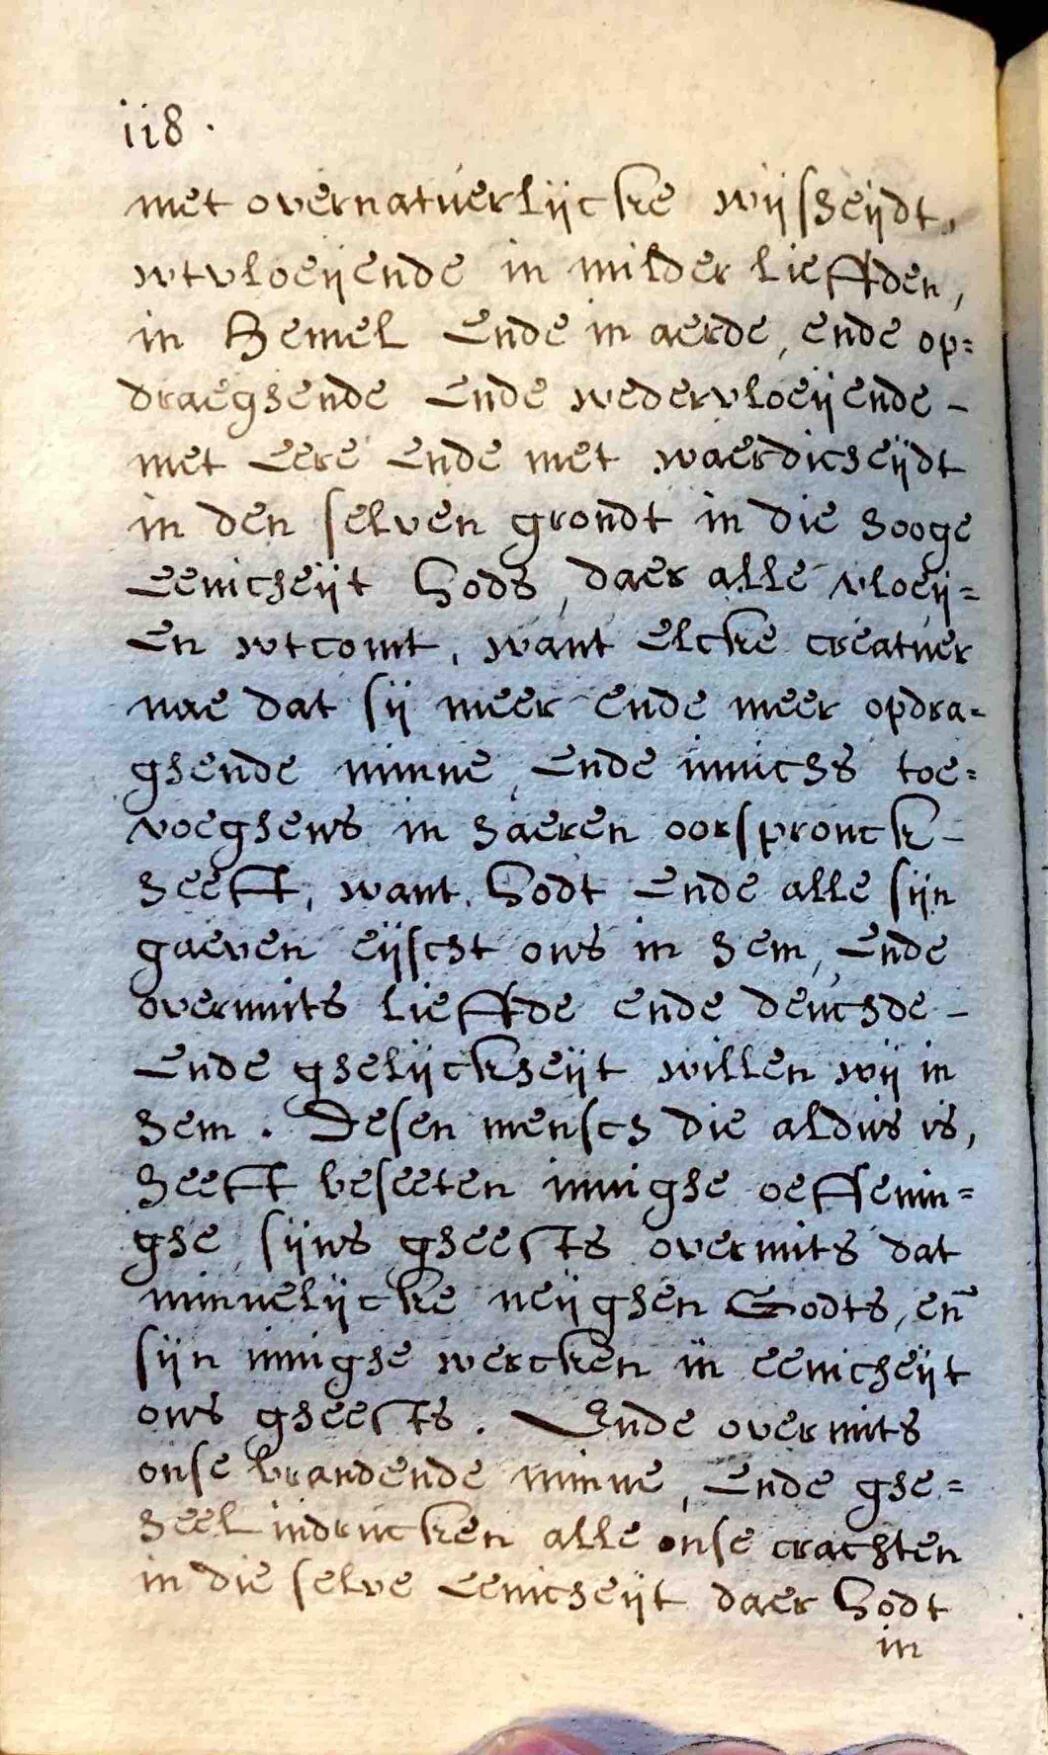 118.
met overnatuerlijcke wijsheijdt,
wtvloeijende in milder lieffden,
in hemel ende in aerde, ende op=
draeghende ende wedervloeijende -
met eere ende met waerdicheijdt
in den selven grondt in die hooge
eenicheijt Gods, daer alle vloeij=
en wtcomt, want elcke creatuer
nae dat sij meer ende meer opdra=
ghende minne, ende innichs toe=
voeghens in haeren oorspronck -
heeft, want Godt ende alle sijn
gaeven eijscht ons in hem, ende
overmits lieffde ende deuchde -
ende ghelijckheijt willen wij in
hem. Desen mensch die aldus is,
heeft beseeten innighe oeffenin=
ghe sijns gheests overmits dat
minnelijcke neijghen Godts, en̄
sijn innighe wercken in eenicheijt
ons gheests. Ende overmits
onse brandende minne, ende ghe=
heel indrucken alle onse crachten
in die selve eenicheijt daer Godt
in